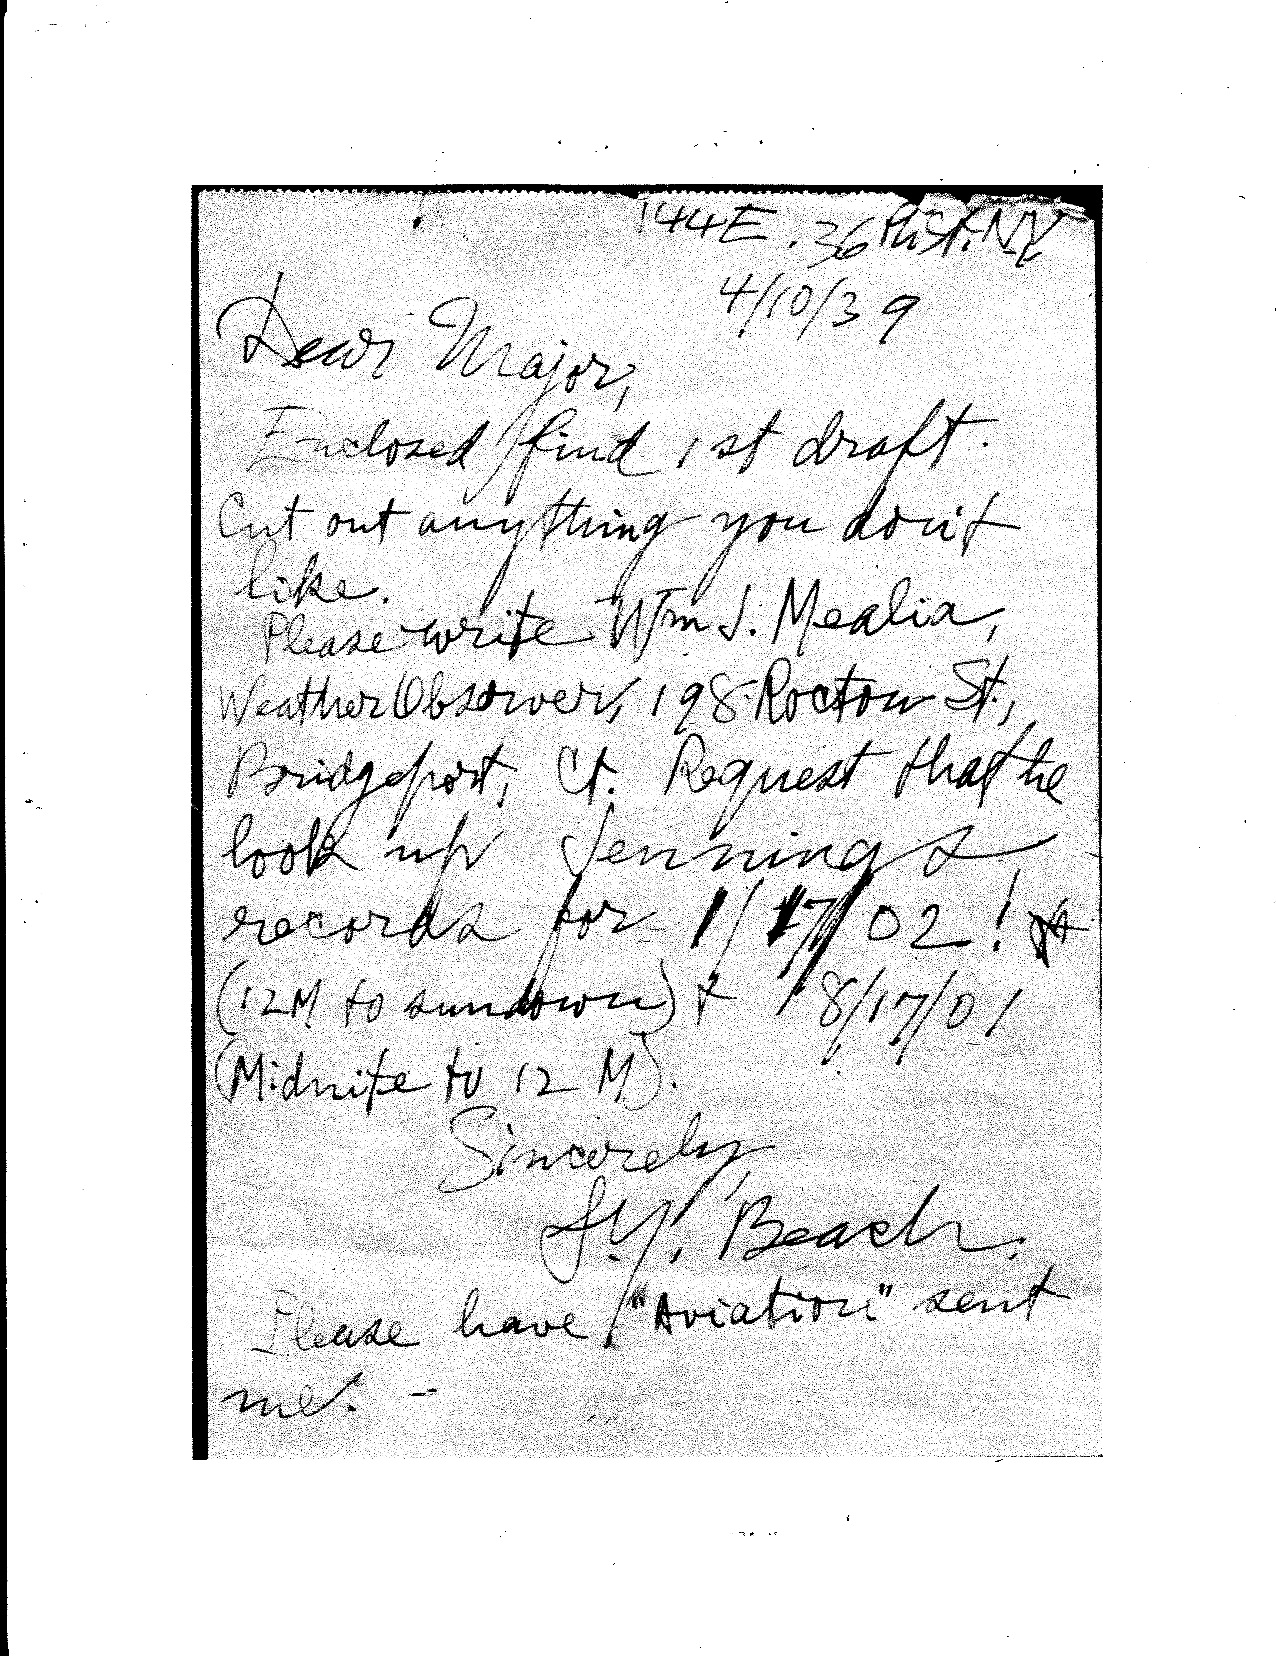 144 E. 36th St. NY
4/10/39
Dear Major,
Enclosed find 1st draft.
Cut out anything you don't
like.
Please write Wm J. Mealia,
Weather Observer, 198 Rocton St.,
Bridgeport, Ct. Request that he
look up Jennings
records for 1/17/02!
(12M to sundown) & 8/17/01
(Midnite to 12 M).
Sincerely,
S.Y. Beach.
Please have "Aviation" sent
me. -